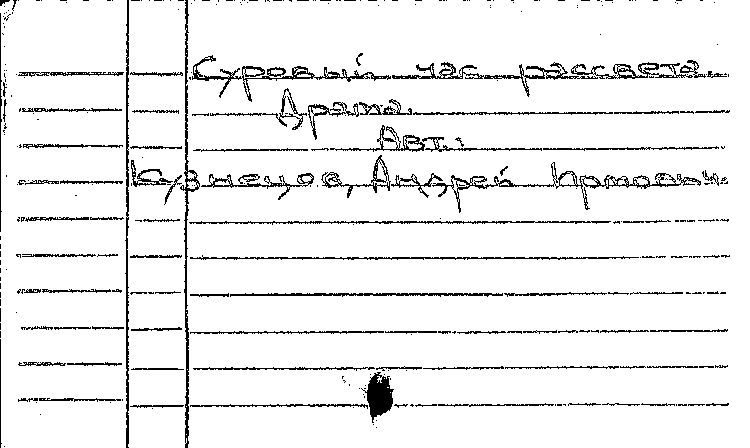 Суровый час рассвета.
Драма.
Авт.:
Кузнецов, Андрей